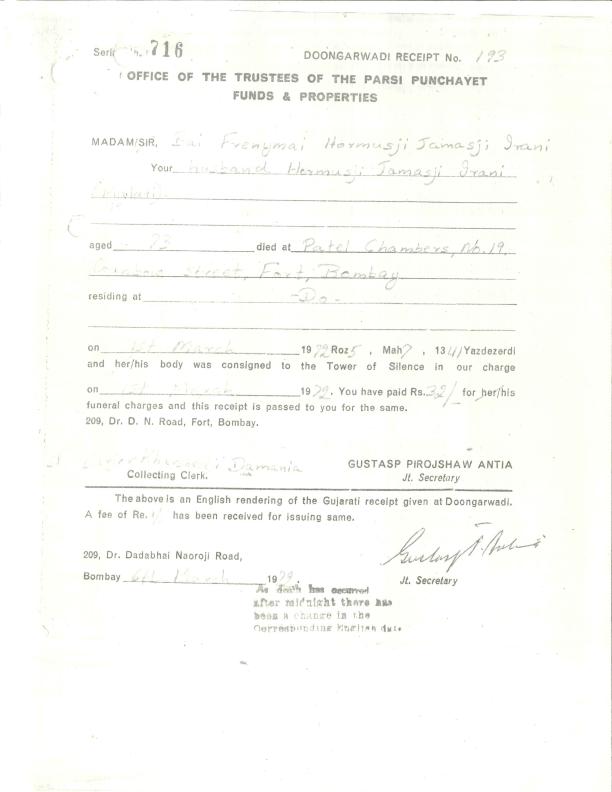 716
DOONGARWADI RECEIPT No. 193
OFFICE OF THE TRUSTEES OF THE PARSI PUNCHAYET
FUNDS & PROPERTIES
MADAM/SIR, Bai Frenymai Hormusji Jamasji Irani
Your husband Hormusji Jamasji Irani
aged 73 died at Patel Chambers, No. 19,
Street, Fort, Bombay
residing at -Do-
on 1st March 1972 Roz 5, Mah 7, 1341 Yazdezerdi
and her/his body was consigned to the Tower of Silence in our charge
on 1st March 1972. You have paid Rs. 32/ for her/his
funeral charges and this receipt is passed to you for the same.
209, Dr. D. N. Road, Fort, Bombay.
Damania GUSTASP PIROJSHAW ANTIA
Collecting Clerk. Jt. Secretary
The above is an English rendering of the Gujarati receipt given at Doongarwadi.
A fee of Re. 1/ has been received for issuing same.
209, Dr. Dadabhai Naoroji Road,
Bombay 6th March 197
Jt. Secretary
As death has occurred
after midnight there has
been a change in the
Corresponding English date